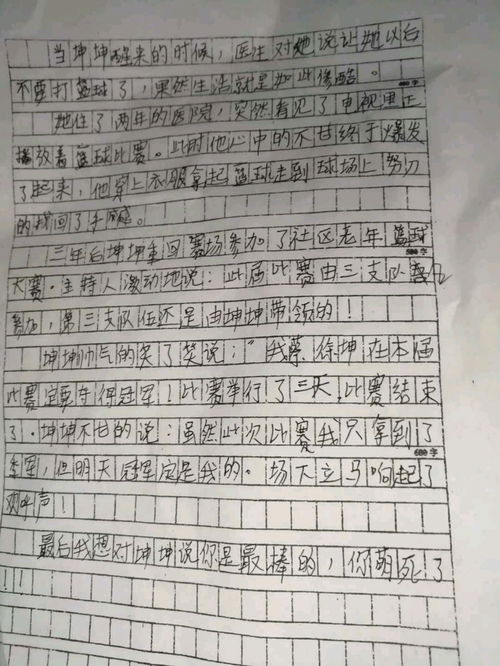 当坤坤醒来的时候，医生对她说让她以后
不要打篮球了，果然生活就是如此惨酷。
600字
她住了两年的医院，突然看见了电视里正
播放着篮球比赛。此时他心中的不甘终于爆发
了起来，他穿上衣服拿起篮球走到球场上努力
的找回了手感。
三年后坤坤重回赛场参加了社区老年篮球
大赛。主持人激动地说：此届比赛由三支队伍
参加，第三支队伍还是由坤坤带领的！
坤坤帅气的笑了笑说：“我蔡徐坤在本届
比赛定要夺得冠军！此赛举行了三天！此赛结束
了。坤坤不甘的说：虽然此次比赛我只拿到了
季军，但明天冠军定是我的。场下立马响起了
欢呼声！
最后我想对坤坤说你是最棒的，你萌死了
！！